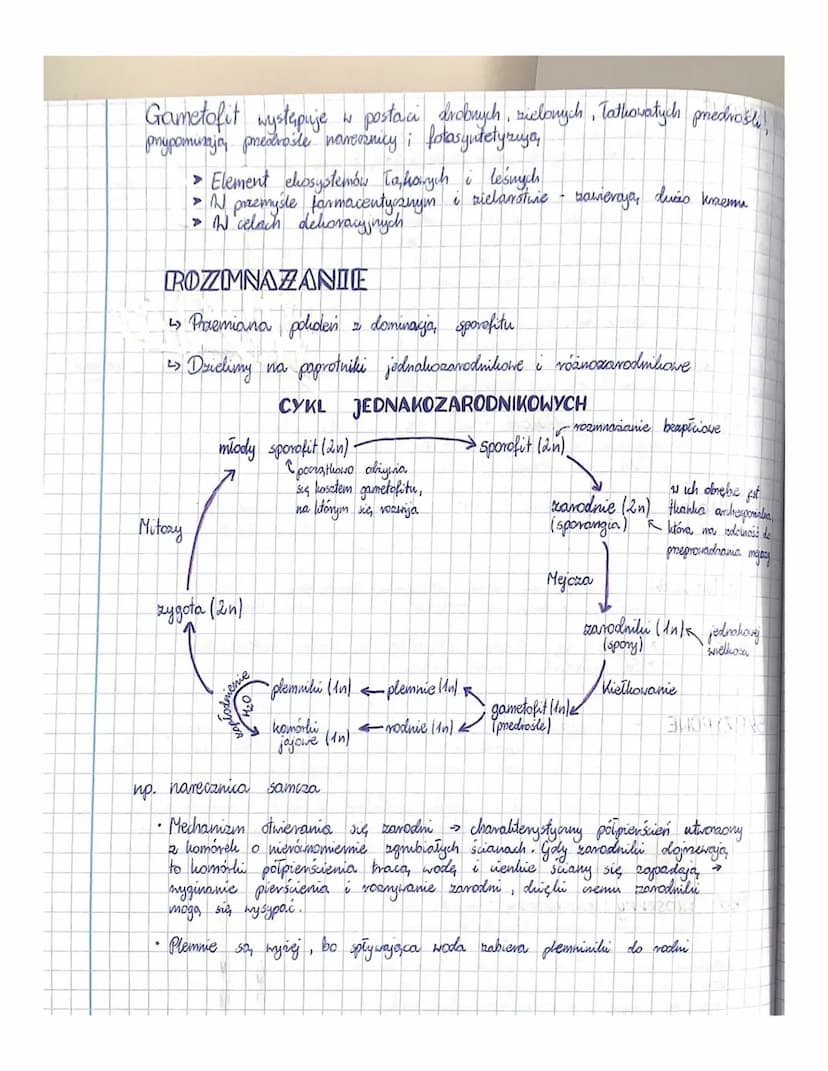 Gametofit występuje w postaci drobnych, zielonych, łatkowatych przedrośli,
przypominają przedrośle narecznicy i fotosyntetyzują
> Element ekosystemów łąkowych i leśnych
> W przemyśle farmaceutycznym i zielarstwie - zawierają dużo krzemu
> W celach dekoracyjnych
ROZMNAŻANIE
↳ Przemiana pokoleń z dominacją sporofitu
↳ Dzielimy na paprotniki jednakozarodnikowe i różnozarodnikowe
CYKL JEDNAKOZARODNIKOWYCH
rozmnażanie bezpłciowe
młody sporofit (2n) → sporofit (2n)
początkowo odżywia
się kosztem gametofitu,
na którym się rozwija
zarodnie (2n)
(sporangia)
w ich obrębie jest
tkanka archesporialna,
która ma zdolność do
przeprowadzania mejozy
Mitozy
Mejoza
zygota (2n)
zarodniki (1n)
(spory)
jednakowej
wielkości
Kiełkowanie
zapłodnienie
H₂O
plemniki (1n) ← plemnie (1n)
gametofit (1n)
(przedrośle)
komórki
jajowe (1n) ← rodnie (1n)
np. narecznica samcza
• Mechanizm otwierania się zarodni → charakterystyczny półpierścień utworzony
z komórek o nierównomiernie zgrubiałych ścianach. Gdy zarodniki dojrzewają
to komórki półpierścienia tracą wodę i cienkie ściany się zapadają →
wyginanie pierścienia i rozrywanie zarodni, dzięki czemu zarodniki
mogą się wysypać.
• Plemnie są wyżej, bo spływająca woda zabiera plemniniki do rodni